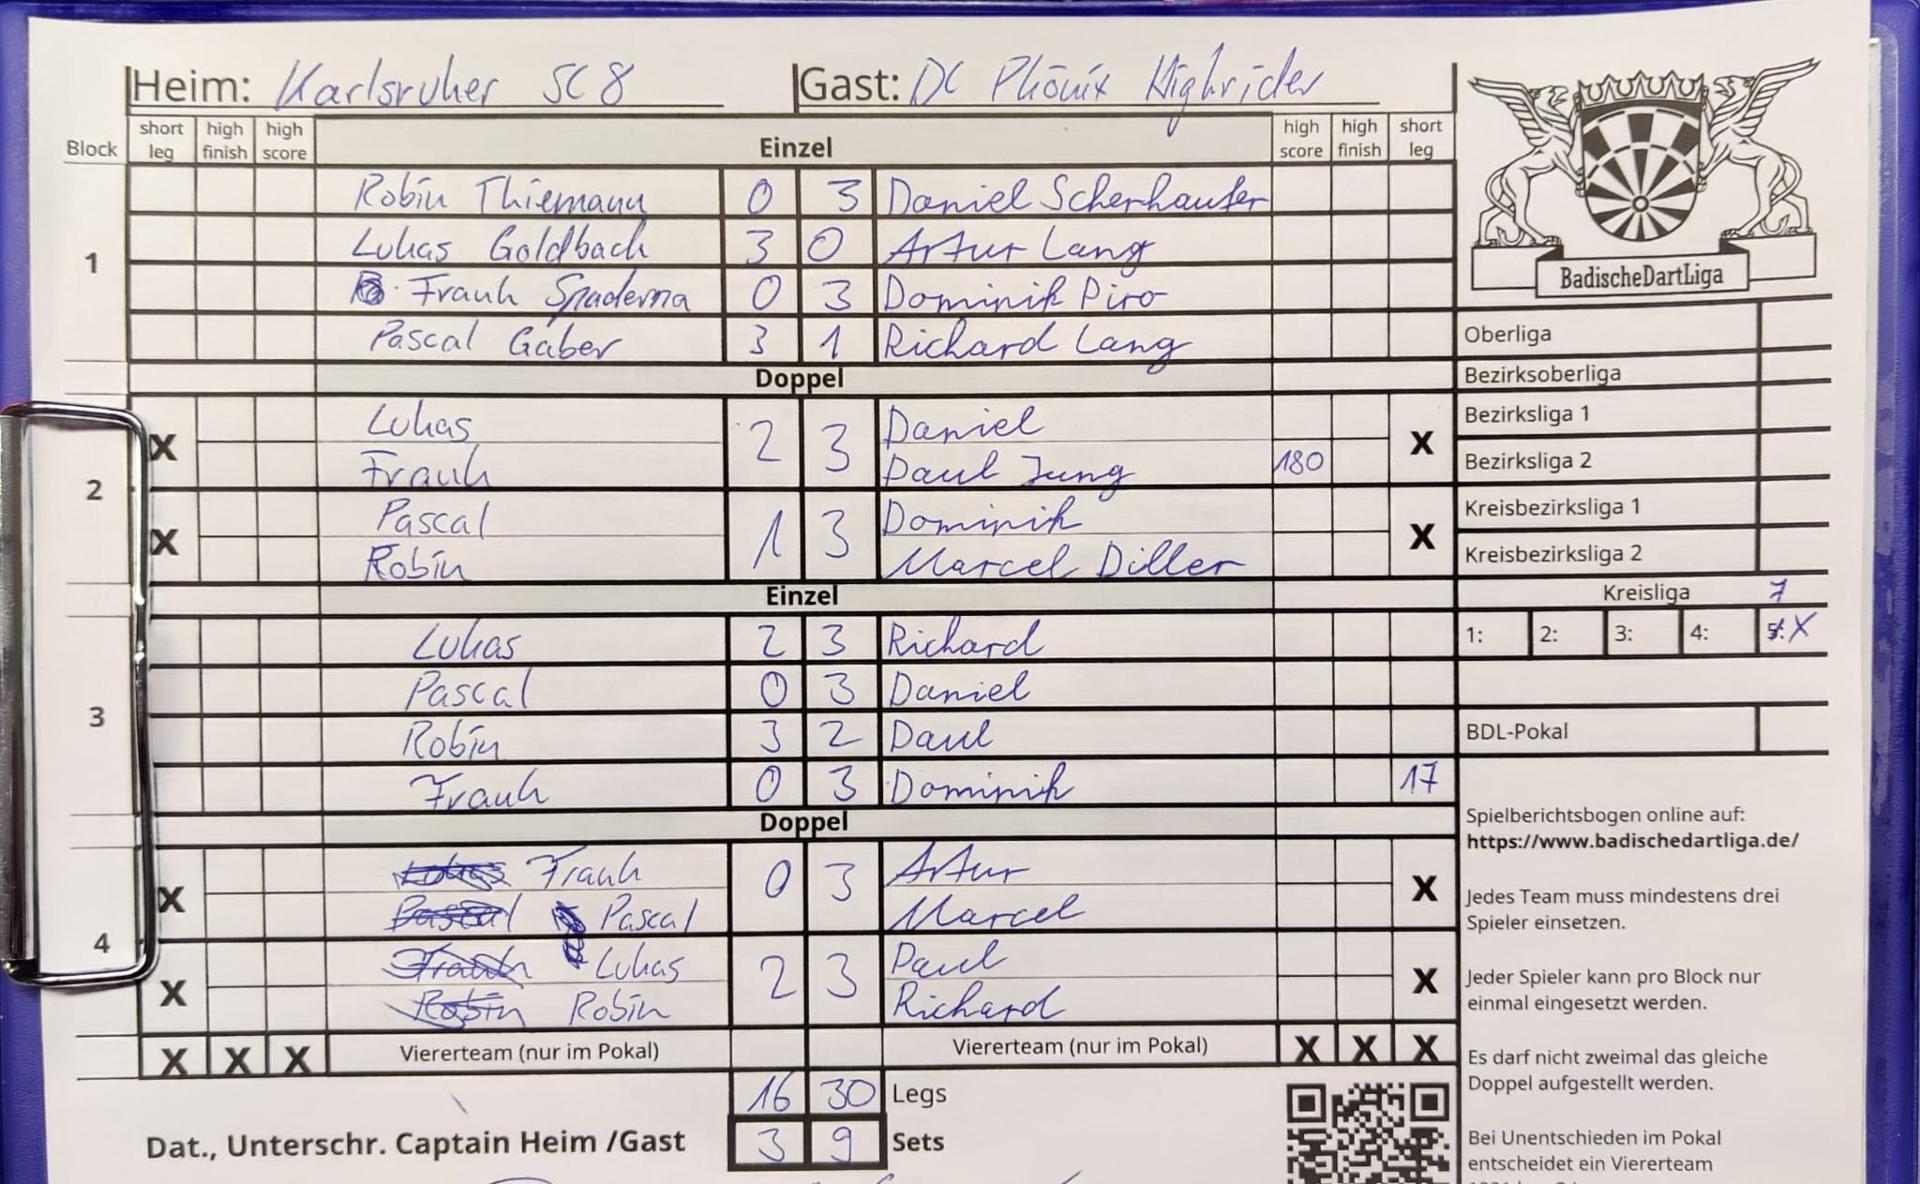 Heim: Karlsruher SC 8 Gast: DC Phönix Highrider
Block short leg high finish high score Einzel high score high finish short leg
1
Robin Thiemann 0 3 Daniel Scherhaufer
Lukas Goldbach 3 0 Artur Lang
Frank Spaderna 0 3 Dominik Piro
Pascal Gaber 3 1 Richard Lang
Doppel
2
X Lukas 2 3 Daniel X
Frank Paul Jung 180
X Pascal 1 3 Dominik X
Robin Marcel Diller
Einzel
3
Lukas 2 3 Richard
Pascal 0 3 Daniel
Robin 3 2 Paul
Frank 0 3 Dominik 17
Doppel
4
X Lukas Frank 0 3 Artur X
Pascal Pascal Marcel
X Frank Lukas 2 3 Paul X
Robin Robin Richard
X X X Viererteam (nur im Pokal) Viererteam (nur im Pokal) X X X
16 30 Legs
Dat., Unterschr. Captain Heim /Gast 3 9 Sets
BadischeDartLiga
Oberliga
Bezirksoberliga
Bezirksliga 1
Bezirksliga 2
Kreisbezirksliga 1
Kreisbezirksliga 2
Kreisliga 7
1: 2: 3: 4: 5: X
BDL-Pokal
Spielberichtsbogen online auf:
https://www.badischedartliga.de/
Jedes Team muss mindestens drei
Spieler einsetzen.
Jeder Spieler kann pro Block nur
einmal eingesetzt werden.
Es darf nicht zweimal das gleiche
Doppel aufgestellt werden.
Bei Unentschieden im Pokal
entscheidet ein Viererteam